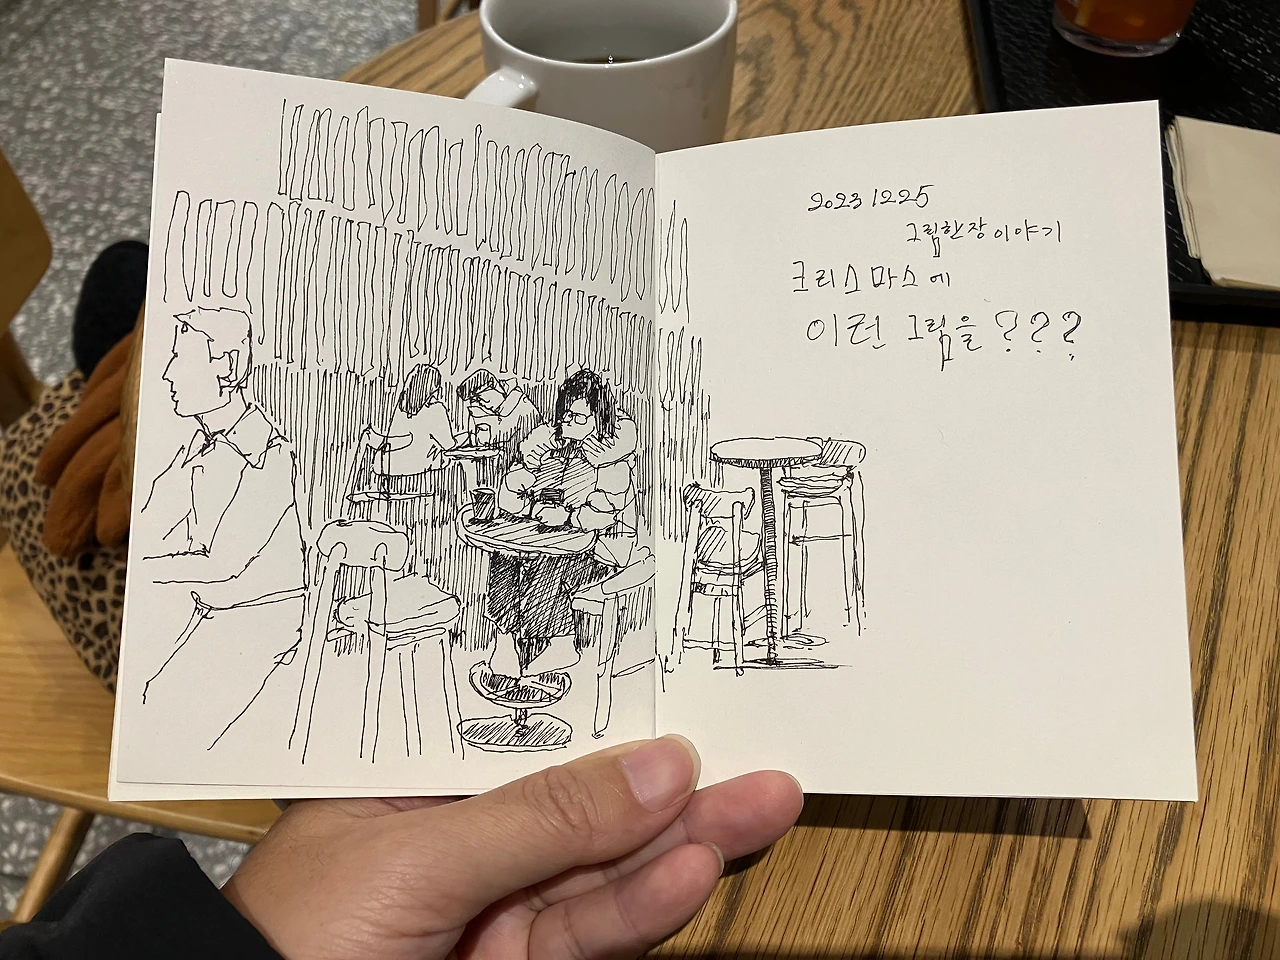 20231225
그림한장이야기
크리스마스에
이런 그림을 ???